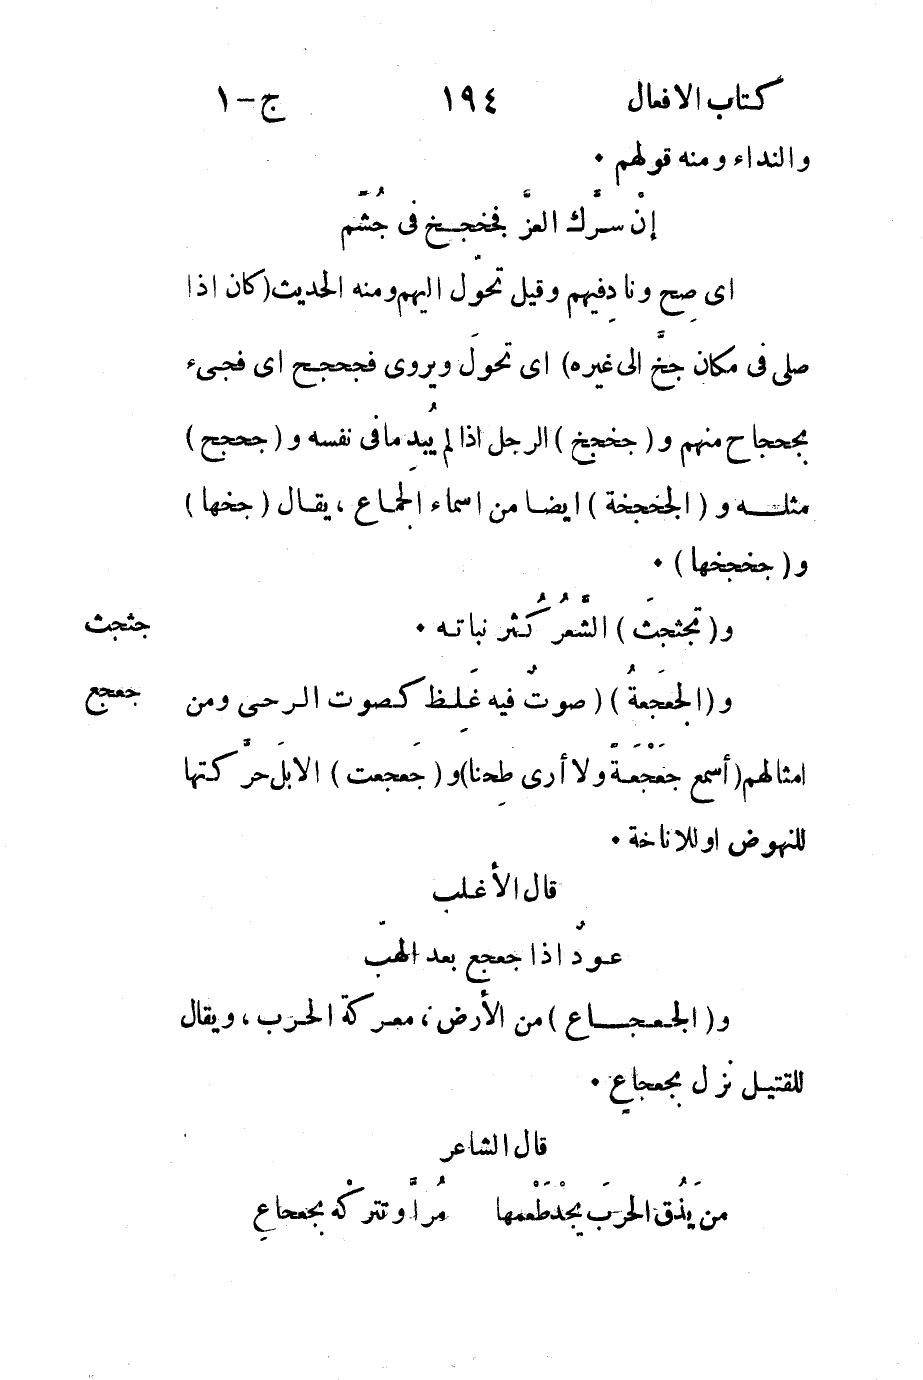 كتاب الافعال ١٩٤ ج-١
والنداء ومنه قولهم ٠
إنْ سرَّك العزَّ فجخجخ فى جُشَّم
اى صِح وناد فيهم وقيل تحوّل اليهم ومنه الحديث (كان اذا
صلى فى مكان جخَّ الى غيره) اى تحولَ ويروى فجحجح اى فجىء
بجحجاح منهم و ( جخجخ ) الرجل اذا لم يُبدِ ما فى نفسه و ( جحجح )
مثلـــه و ( الجَخجخة ) ايضا من اسماء الجماع ، يقال ( جخها )
و ( جخجخها ) ٠
و ( تجثجثَ ) الشَّعرُ كُثر نباته ٠ جثجث
و ( الجَعجَعةُ ) ( صوتٌ فيه غَلِظ كصوت الرحى ومن جعجع
امثالهم (أسمع جَعْجَعةً ولا أرى طِحنا) و ( جَعجعت ) الابلَ حرَّكتها
للنهوض او للاناخة ٠
قال الأغلب
عودٌ اذا جعجع بعد الهبّ
و ( الجعجـــاع ) من الأرض ، معركة الحرب ، ويقال
للقتيل نزل بجعجاعٍ ٠
قال الشاعر
من يَذُق الحربَ يجدْ طَعْمها مُراًّ وتتركْه بجعجاعِ